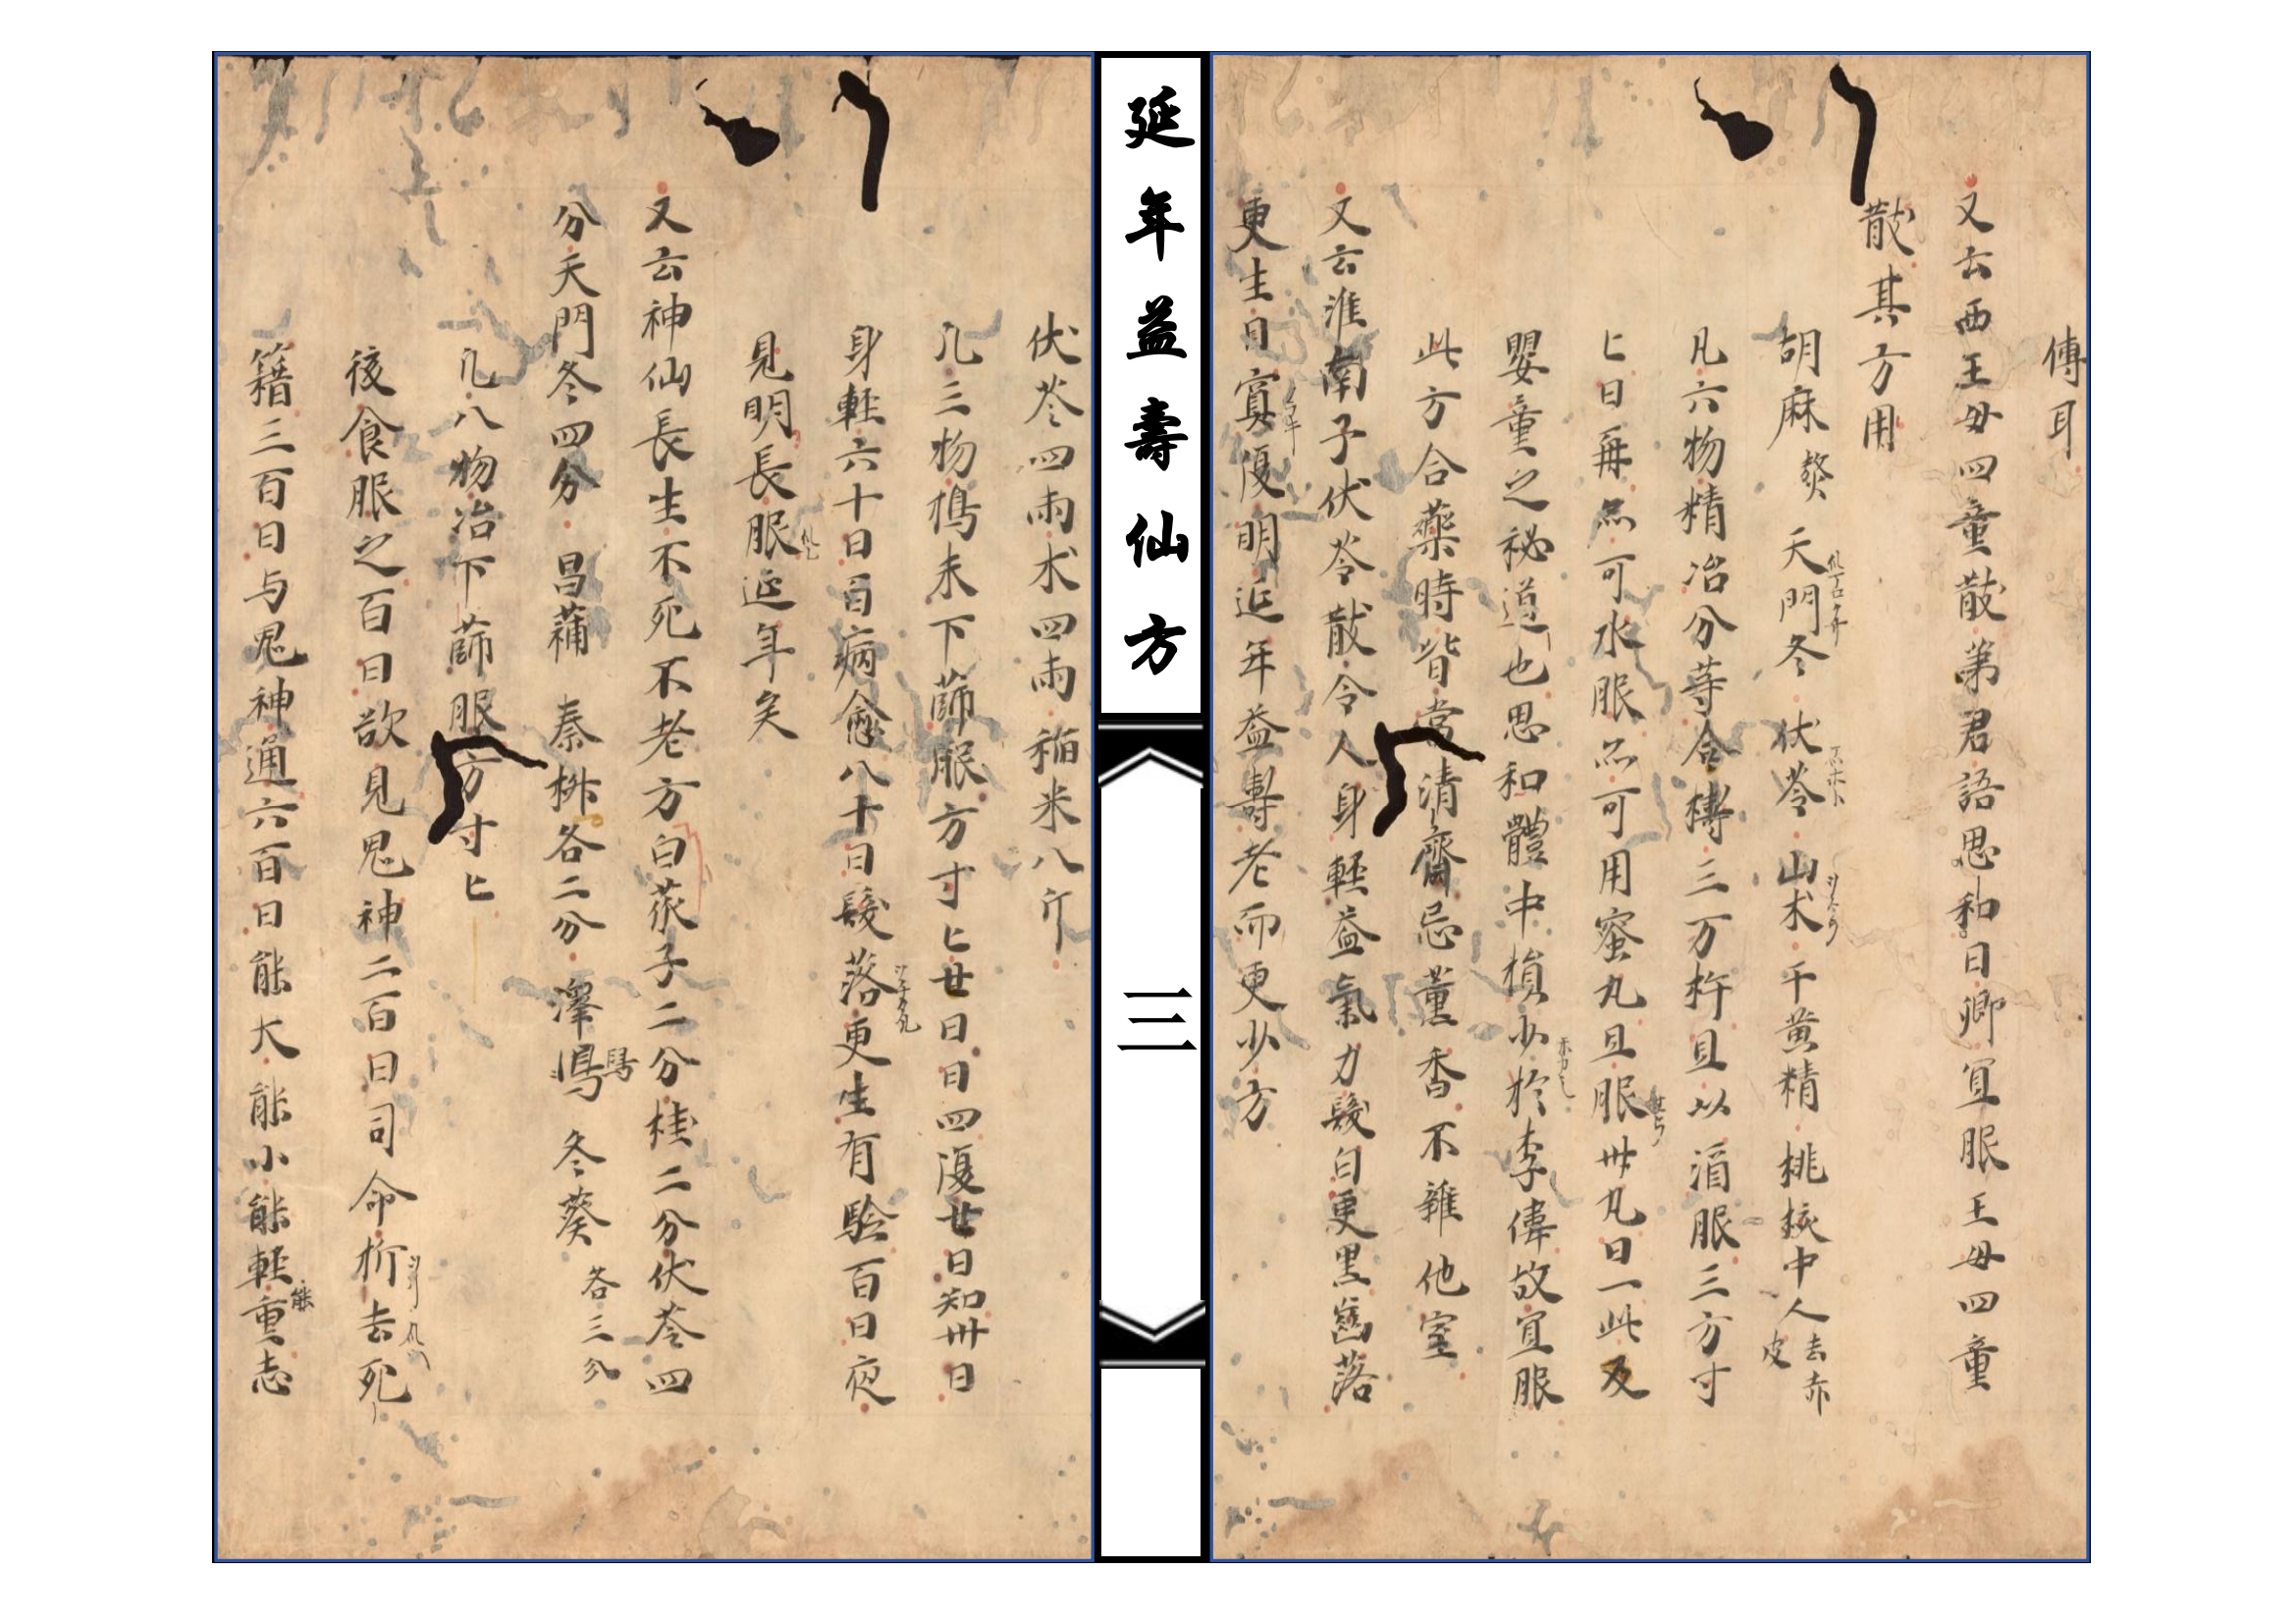 傳耳
又云西王母四童散第君語思和曰卿宜服王母四童
散其方用
胡麻熬 天門冬 伏苓 山术 干黄精 桃核中人去赤皮
凡六物精冶分等合擣三万杵且以酒服三方寸
匕日再亦可水服亦可用蜜丸旦服卅丸日一此及
嬰童之祕道也思和體中損少於李偉故宜服
此方合藥時皆當清齋忌薰香不雜他室
又云淮南子伏苓散令人身輕益氣力髮白更黑齒落
更生目冥復明延年益壽老而更少方
延年益壽仙方
三
伏苓四兩术四兩稲米八斤
凡三物擣末下篩服方寸匕廿日日四復廿日知卅日
身輕六十日百病愈八十日髮落更生有驗百日夜
見明長服延年矣
又云神仙長生不死不老方白菰子二分桂二分伏苓四
分天門冬四分 昌蒲 秦椒各二分 澤舄 冬葵各三分
凡八物冶下篩服方寸匕
後食服之百日欲見鬼神二百日司命折去死
籍三百日与鬼神通六百日能大能小能輕能重志